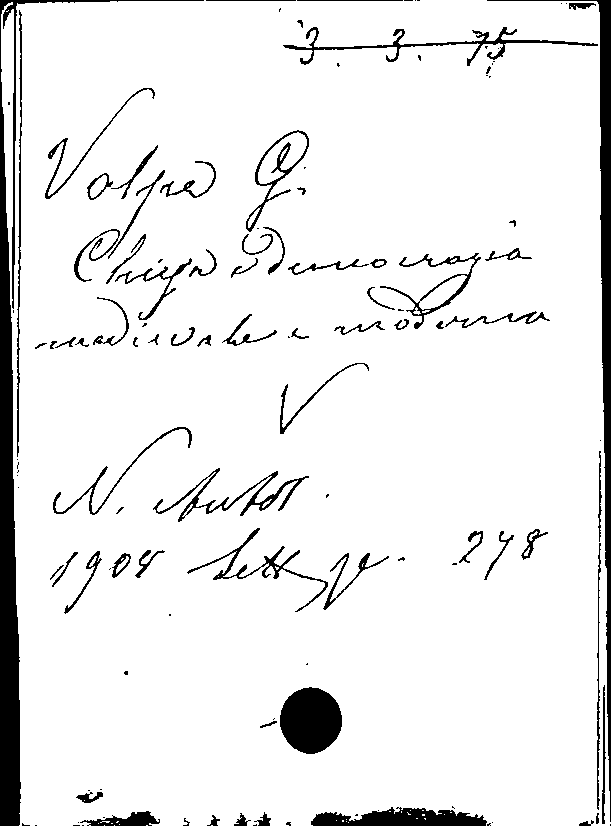 3. 3. 75
Volpe G.
Chiesa e democrazia
medievale e moderna
V
N. Antol.
1908 Sett pe. 248